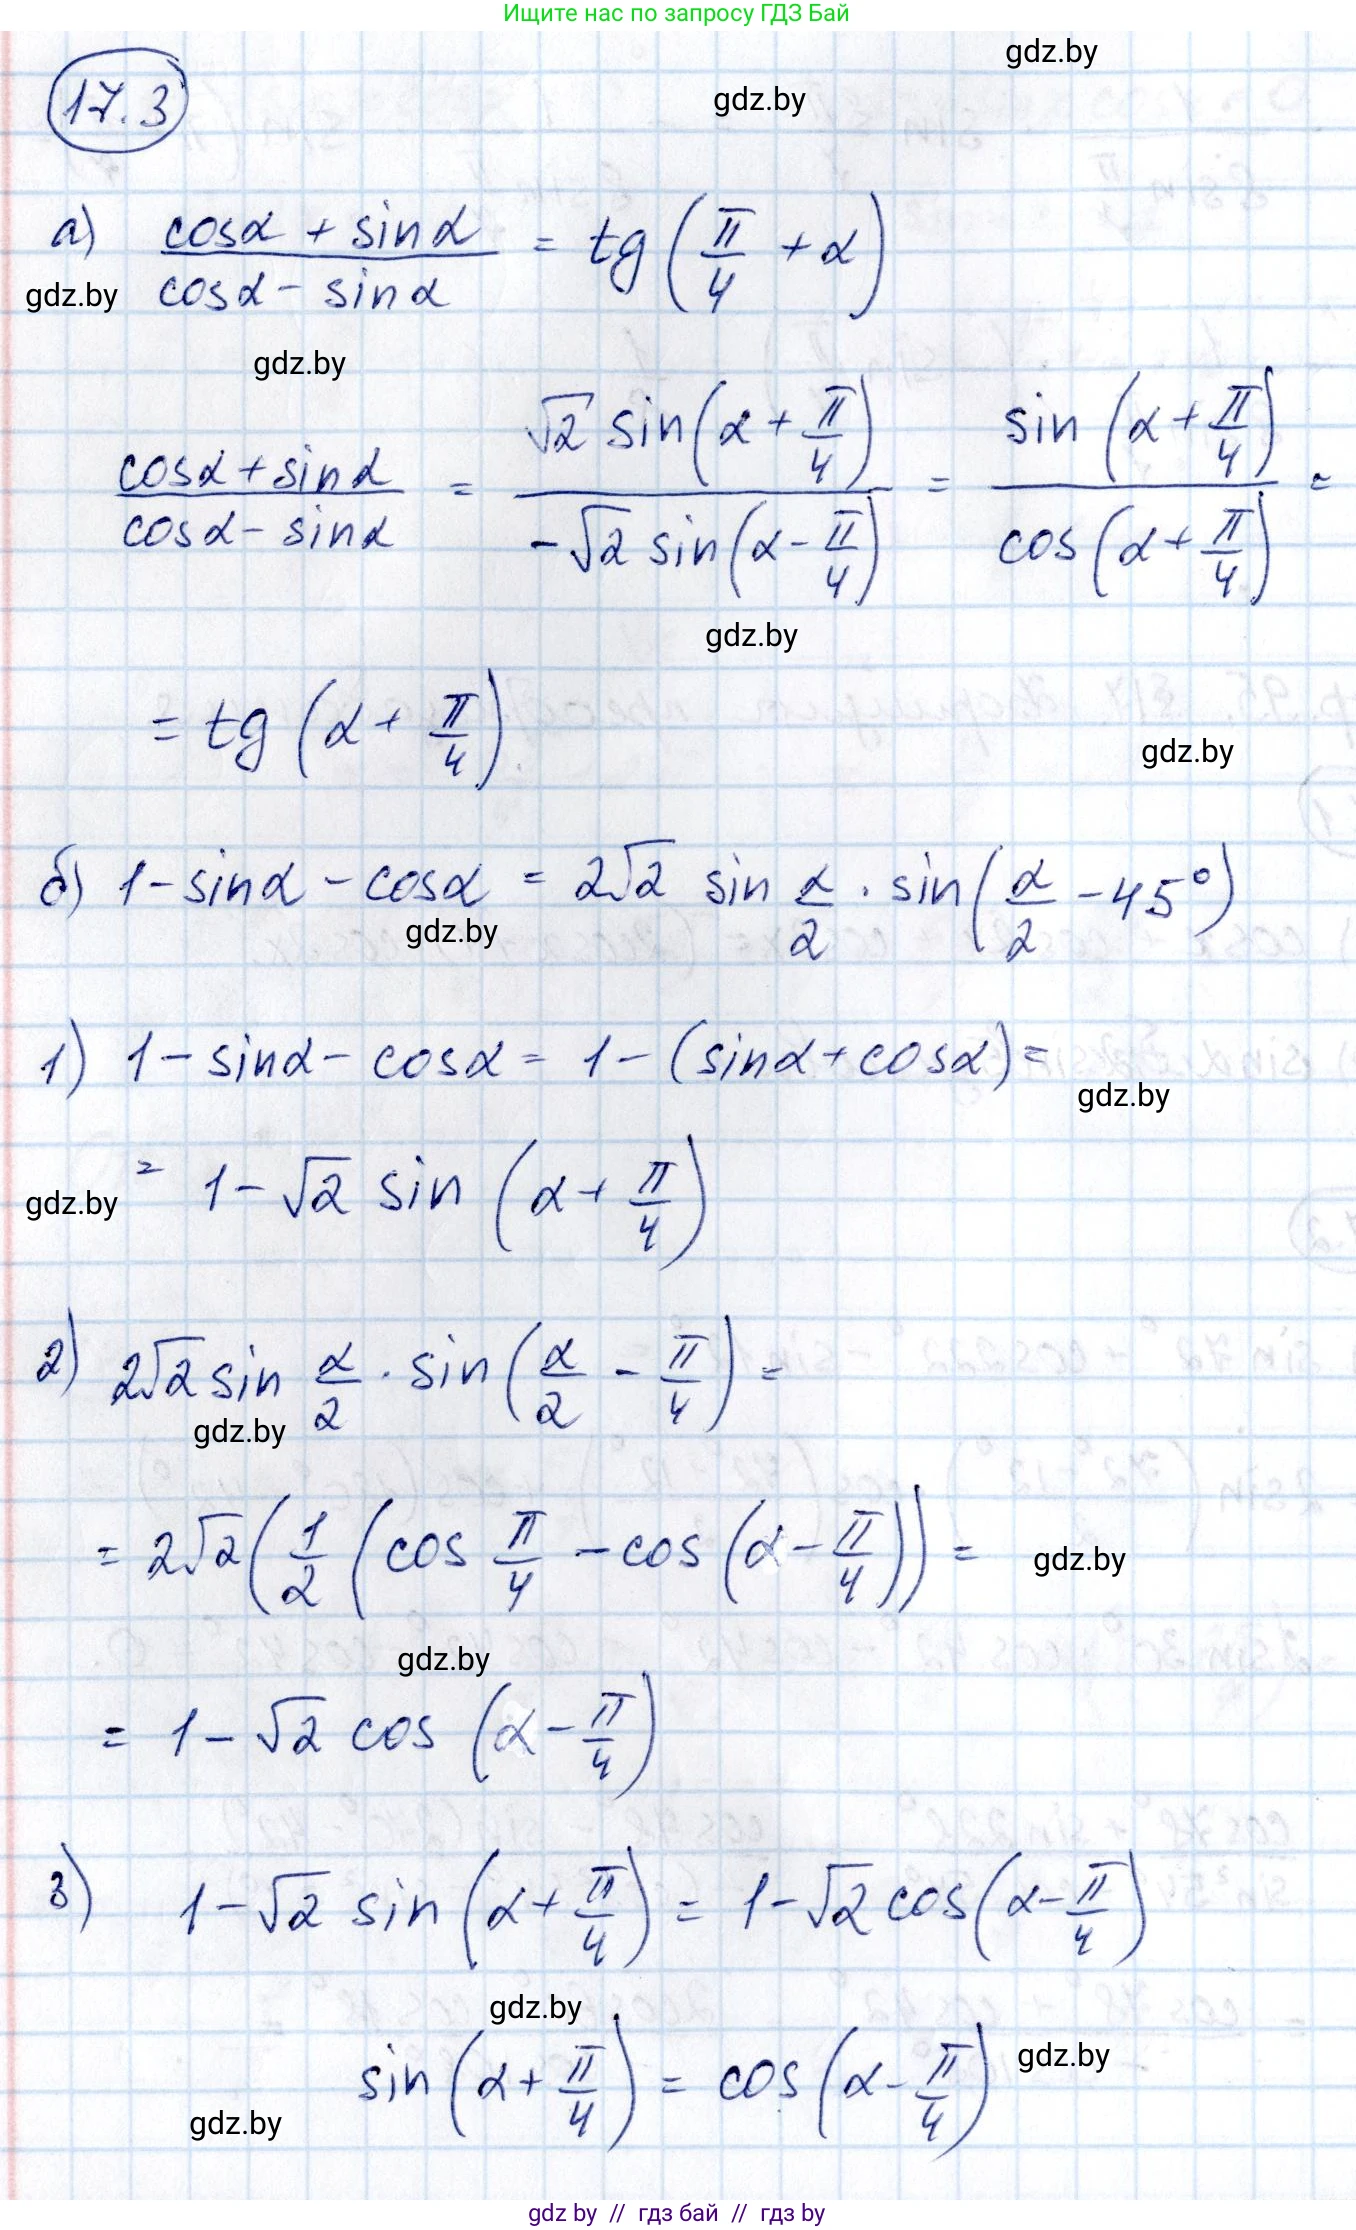 Ищите нас по запросу ГДЗ Бай
gdz.by
gdz.by
17.3
а) (cosα + sinα)/(cosα - sinα) = tg(π/4 + α)
gdz.by
gdz.by
(cosα + sinα)/(cosα - sinα) = (√2 sin(α + π/4))/(-√2 sin(α - π/4)) = (sin(α + π/4))/(cos(α + π/4)) =
gdz.by
= tg(α + π/4).
gdz.by
б) 1 - sinα - cosα = 2√2 sin α/2 · sin(α/2 - 45°)
gdz.by
1) 1 - sinα - cosα = 1 - (sinα + cosα) =
gdz.by
= 1 - √2 sin(α + π/4)
gdz.by
2) 2√2 sin α/2 · sin(α/2 - π/4) =
gdz.by
= 2√2(1/2(cos π/4 - cos(α - π/4))) =
gdz.by
gdz.by
= 1 - √2 cos(α - π/4)
3) 1 - √2 sin(α + π/4) = 1 - √2 cos(α - π/4)
gdz.by
sin(α + π/4) = cos(α - π/4)
gdz.by
gdz.by
gdz by // гдз бай // гдз by